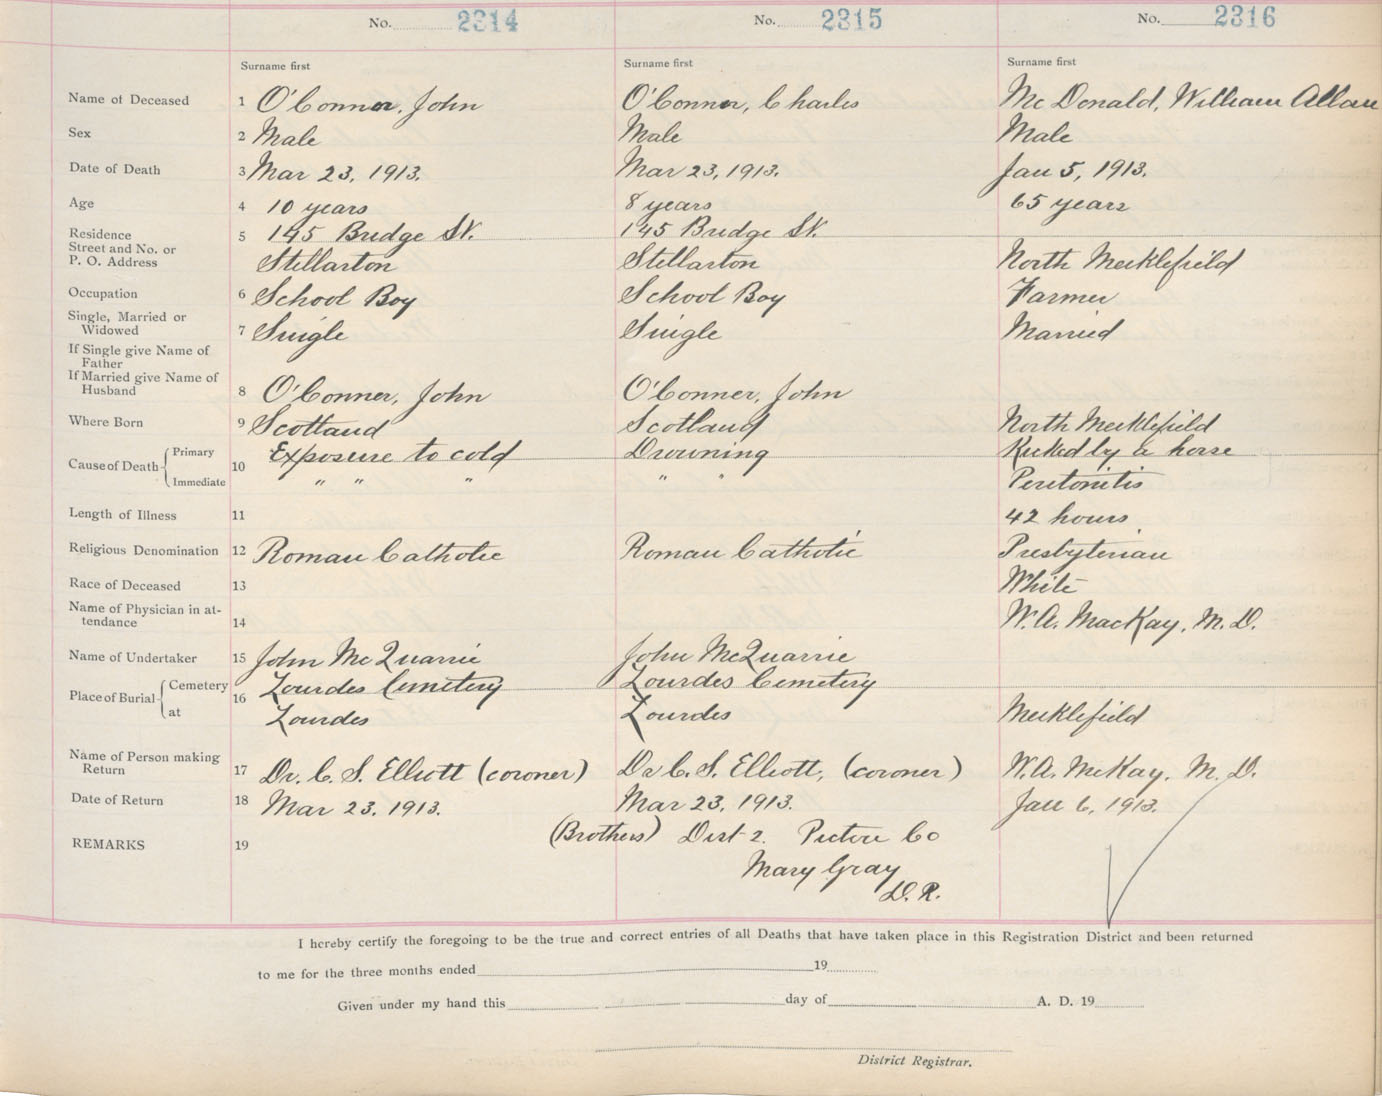 No. 2314 No. 2315 No. 2316
Surname first Surname first Surname first
Name of Deceased 1 O'Conner, John O'Conner, Charles Mc Donald, William Allan
Sex 2 Male Male Male
Date of Death 3 Mar 23, 1913. Mar 23, 1913. Jan 5, 1913.
Age 4 10 years 8 years 65 years
Residence 5 145 Bridge St. 145 Bridge St.
Street and No. or
P. O. Address Stellarton Stellarton North Merklefield
Occupation 6 School Boy School Boy Farmer
Single, Married or
Widowed 7 Single Single Married
If Single give Name of
Father
If Married give Name of
Husband 8 O'Conner, John O'Conner, John
Where Born 9 Scotland Scotland North Merklefield
Cause of Death Primary 10 Exposure to cold Drowning Kicked by a horse
Immediate " " " " " Peritonitis
Length of Illness 11 42 hours
Religious Denomination 12 Roman Catholic Roman Catholic Presbyterian
Race of Deceased 13 White
Name of Physician in at-
tendance 14 W. A. MacKay, M. D.
Name of Undertaker 15 John McQuarrie John McQuarrie
Place of Burial Cemetery 16 Lourdes Cemetery Lourdes Cemetery
at Lourdes Lourdes Merklefield
Name of Person making
Return 17 Dr. C. S. Elliott (coroner) Dr C. S. Elliott, (coroner) W. A. McKay, M. D.
Date of Return 18 Mar 23, 1913. Mar 23, 1913. Jan 6, 1913.
REMARKS 19 (Brothers) Dist 2. Pictou Co
Mary Gray
D. R.
I hereby certify the foregoing to be the true and correct entries of all Deaths that have taken place in this Registration District and been returned
to me for the three months ended 19
Given under my hand this day of A. D. 19
District Registrar.